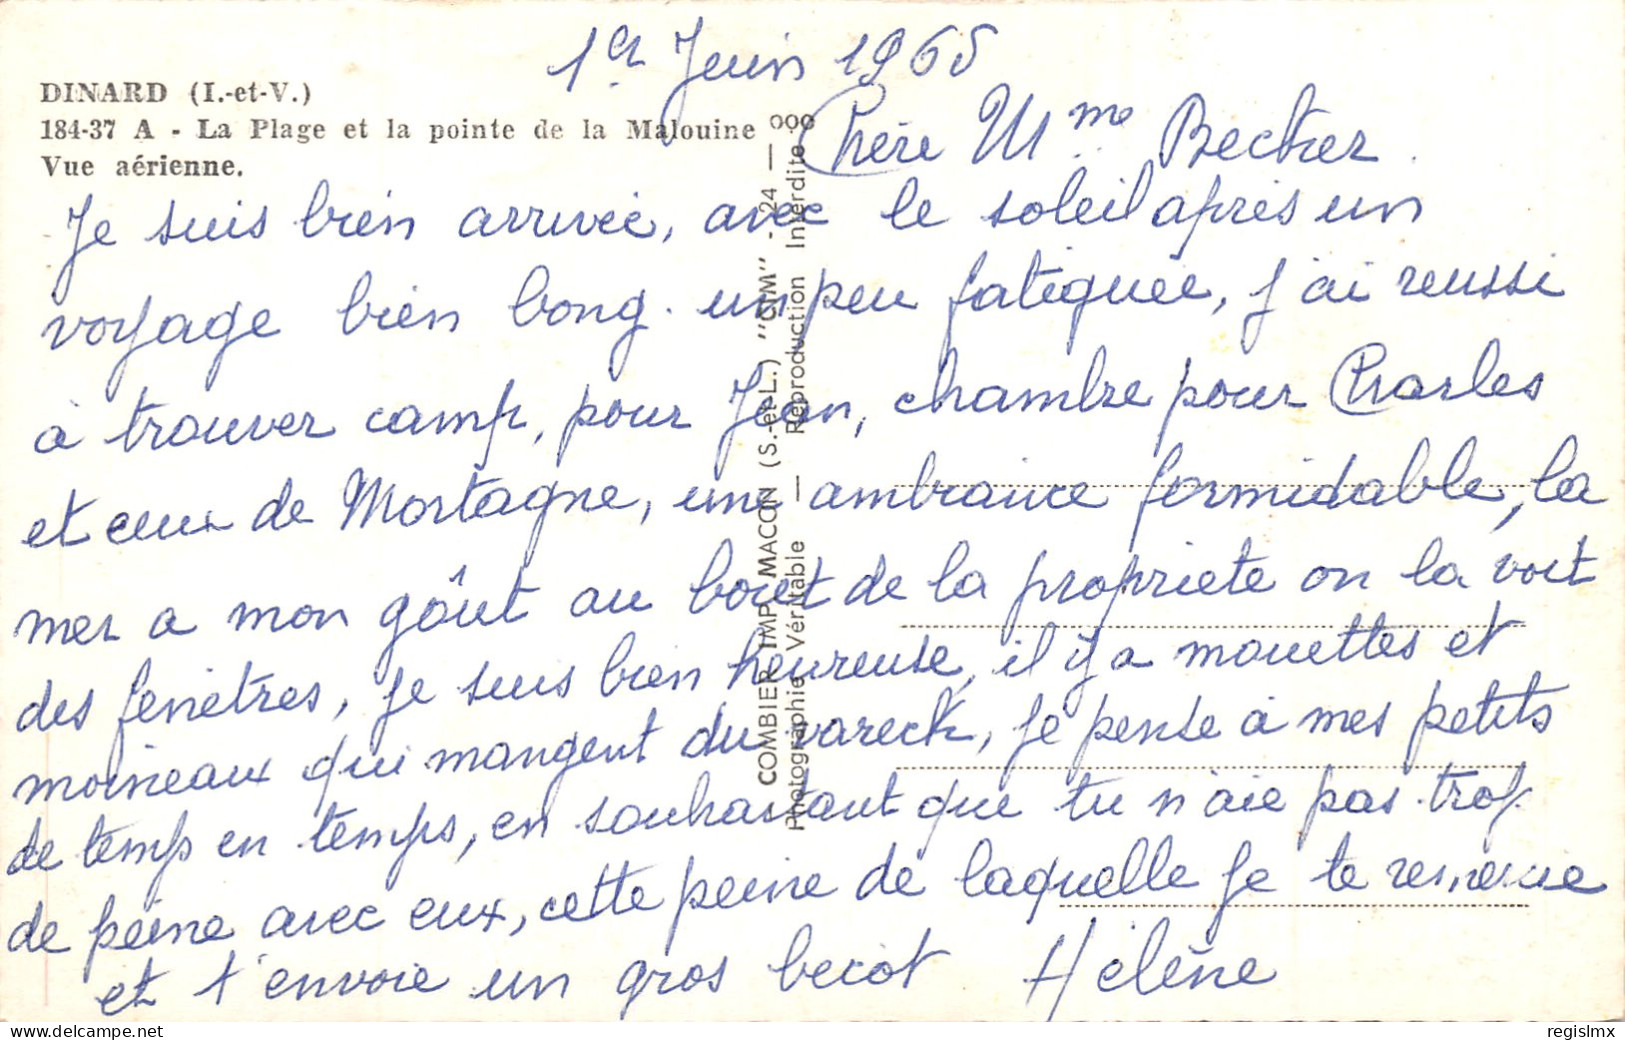 1er Juin 1965
DINARD (I.-et-V.)
184-37 A - La Plage et la pointe de la Malouine
Vue aérienne.
Chère Mme Becker
Je suis bien arrivée, avec le soleil après un
voyage bien long. un peu fatiguée, j'ai reussi
à trouver camp, pour Jean, chambre pour Charles
et ceux de Mortagne, une ambiance formidable, la
mer a mon goût au bout de la propriete on la voit
des fenêtres, je suis bien heureuse, il y a mouettes et
moineaux qui mangent du vareck, je pense à mes petits
de temps en temps, en souhaitant que tu n'aie pas trop
de peine avec eux, cette peine de laquelle je te remercie
et t'envoie un gros becot Hélène
COMBIER IMP. MACON (S.-et-L.) "CIM" - 24 - ooo
Photographie Véritable — Reproduction Interdite
regislmx